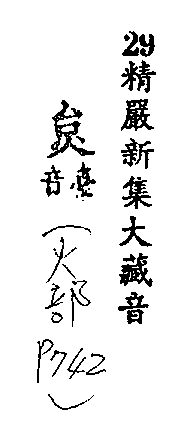 29精嚴新集大藏音
炱臺音(火部P742)